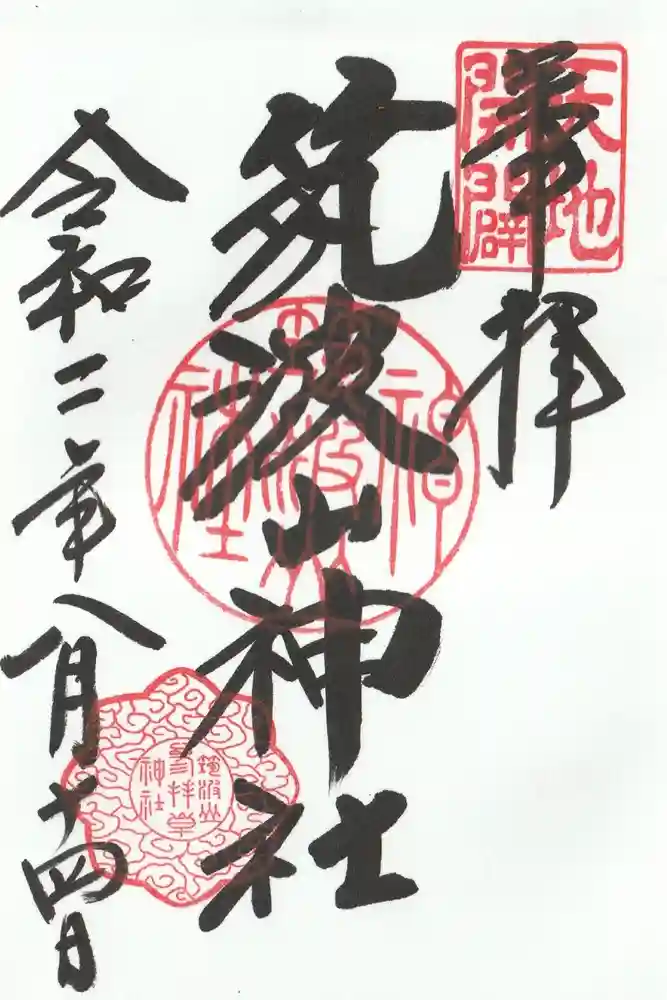 奉拝
天地
開闢
筑波山神社
筑波山
神社
令和二年八月十四日
筑波山
参拝章
神社